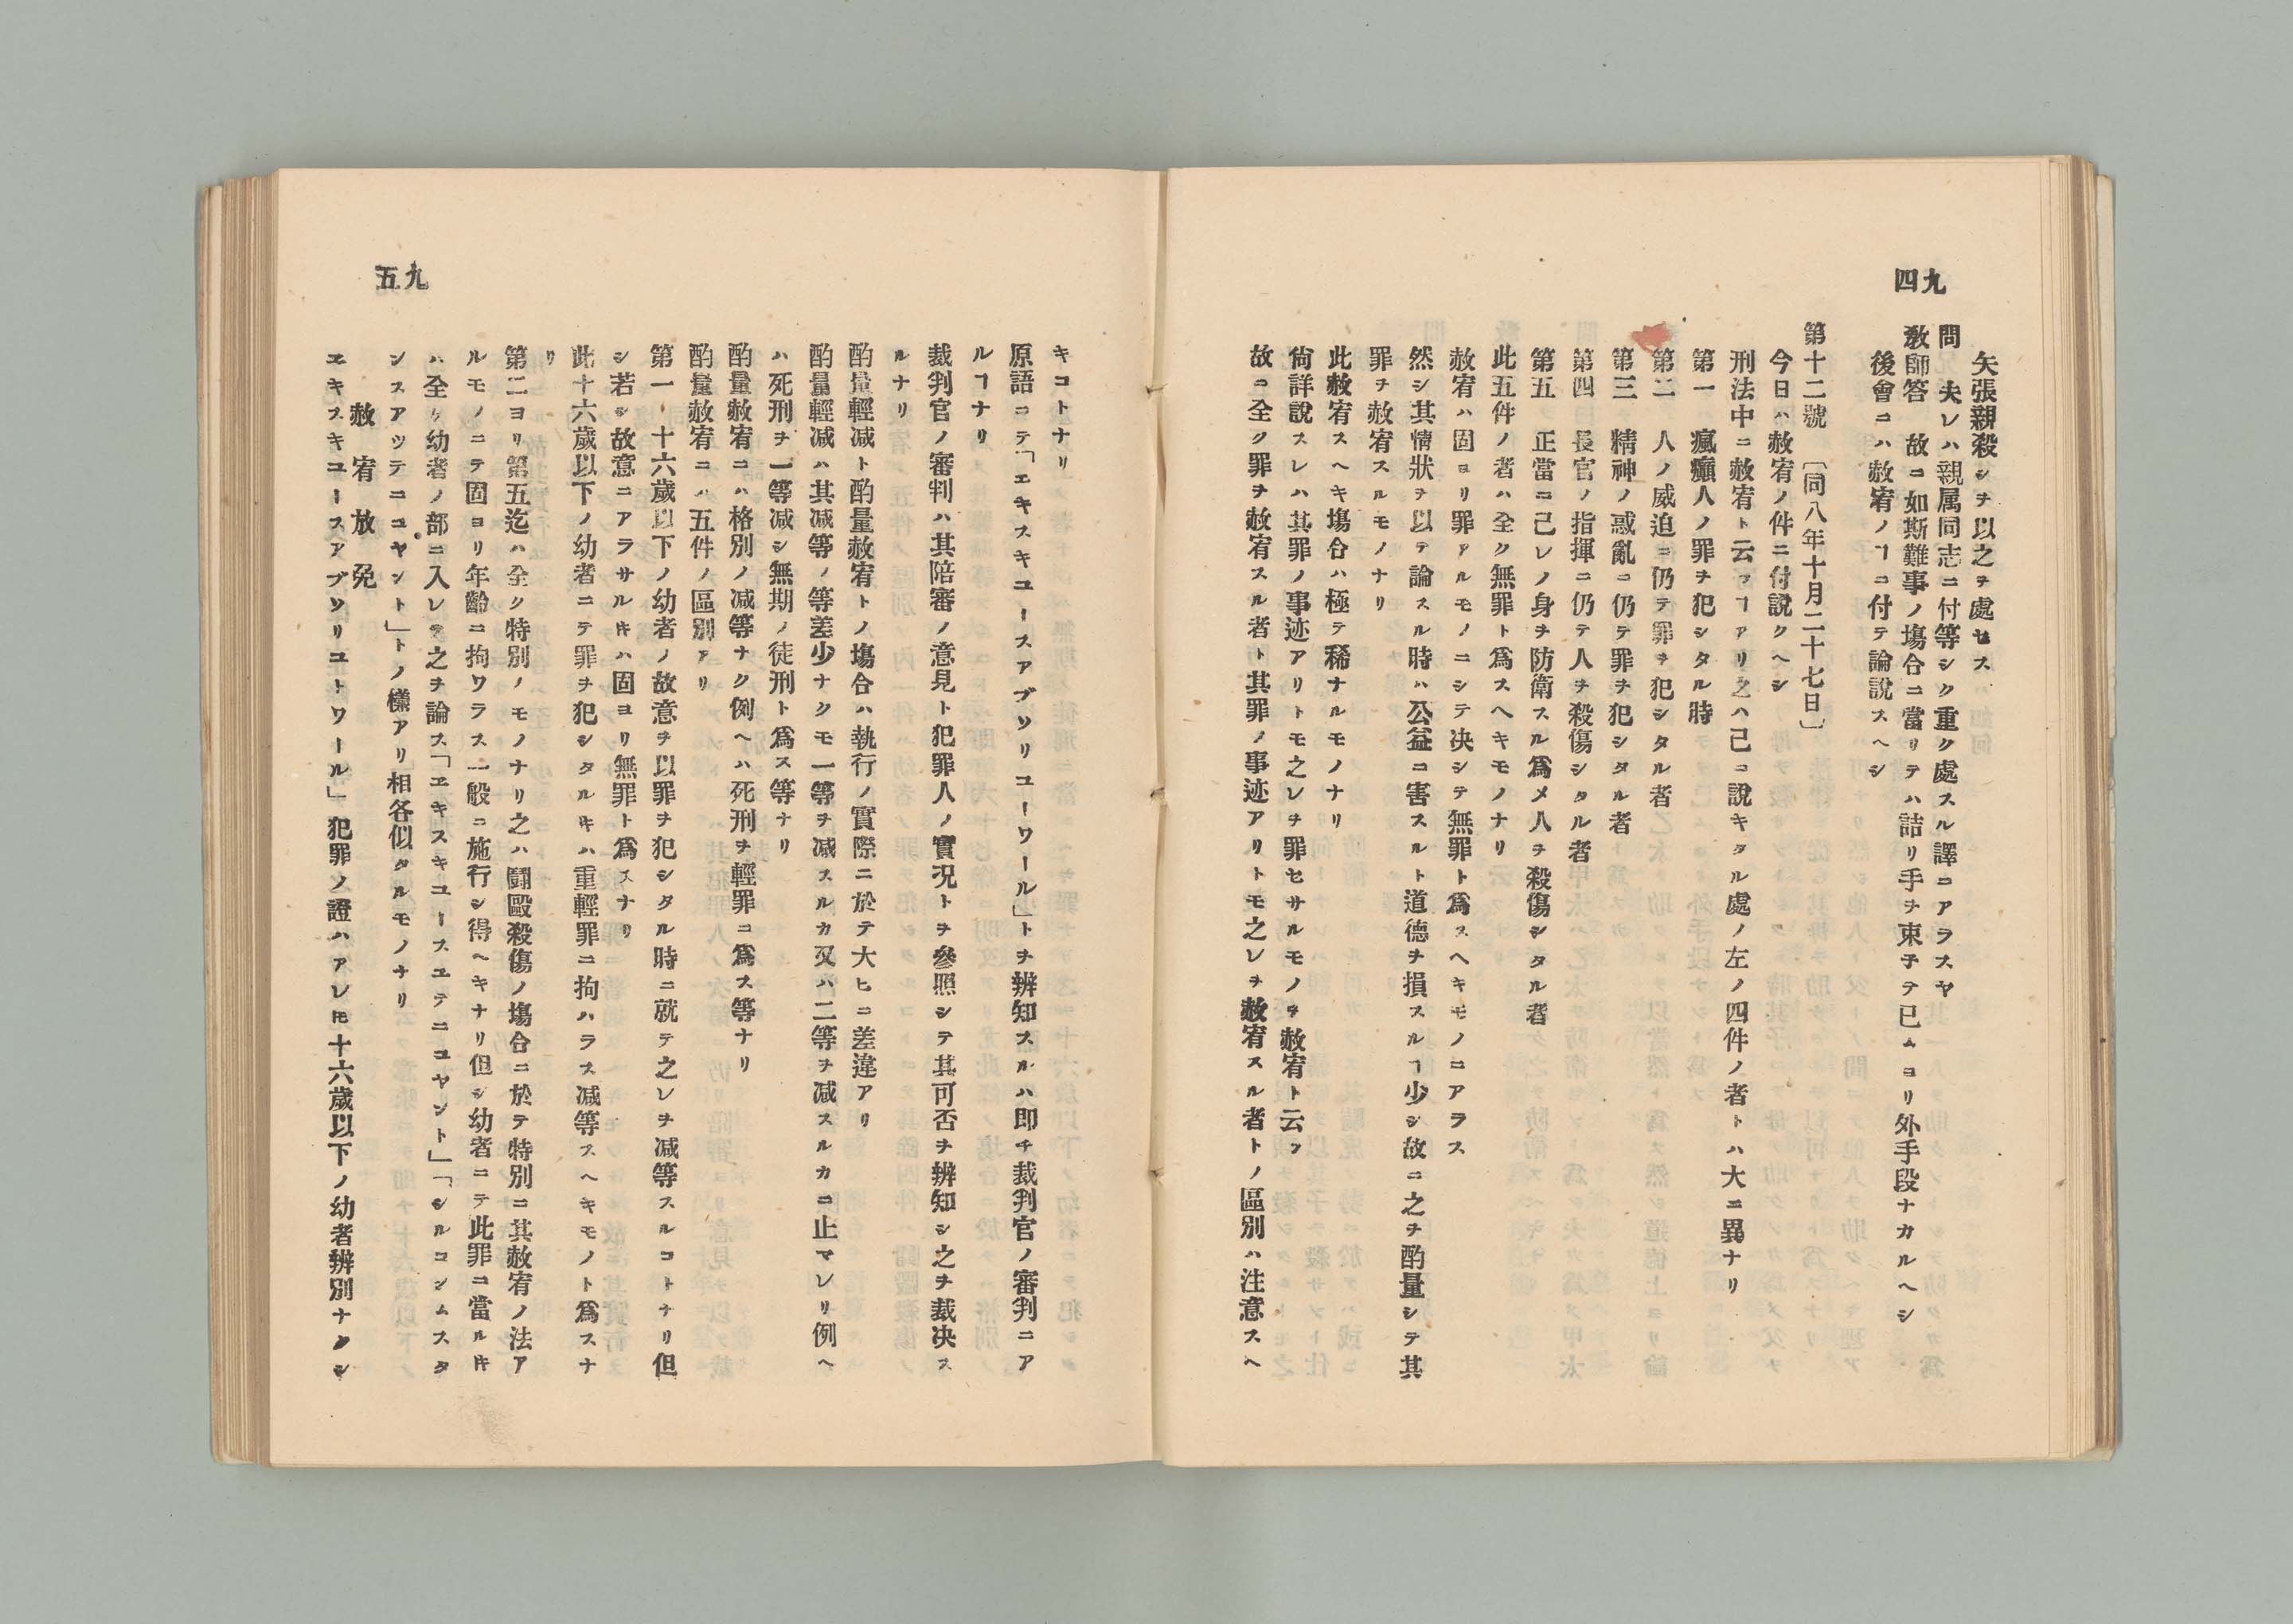 四九
矢張親殺シヲ以之ヲ處セス
問　夫レハ親属同志ニ付等シク重ク處スル譯ニアラスヤ
教師答　故ニ如斯難事ノ塲合ニ當リテハ詰リ手ヲ束子テ已ムヨリ外手段ナカルヘシ
後會ニハ赦宥ノヿニ付テ論説スヘシ
第十二號　〔同八年十月二十七日〕
今日ハ赦宥ノ件ニ付説クヘシ
刑法中ニ赦宥ト云フヿアリ之ハ己ニ說キタル處ノ左ノ四件ノ者トハ大ニ異ナリ
第一　瘋癲人ノ罪ヲ犯シタル時
第二　人ノ威迫ニ仍テ罪ヲ犯シタル者
第三　精神ノ惑亂ニ仍テ罪ヲ犯シタル者
第四　長官ノ指揮ニ仍テ人ヲ殺傷シタル者
第五　正當ニ己レノ身ヲ防衛スル爲メ人ヲ殺傷シタル者
此五件ノ者ハ全ク無罪ト爲スヘキモノナリ
赦宥ハ固ヨリ罪アルモノニシテ决シテ無罪ト爲スヘキモノニアラス
然シ其情狀ヲ以テ論スル時ハ公益ニ害スルト道德ヲ損スルヿ少シ故ニ之ヲ酌量シテ其
罪ヲ赦宥スルモノナリ
此赦宥スヘキ塲合ハ極テ稀ナルモノナリ
尙詳說スレハ其罪ノ事迹アリトモ之レヲ罪セサルモノヲ赦宥ト云フ
故ニ全ク罪ヲ赦宥スル者ト其罪ノ事迹アリトモ之レヲ赦宥スル者トノ區別ハ注意スヘ
五九
キコトナリ
原語ニテ「エキスキユースアブソリユーワール」トヲ辨知スルハ即チ裁判官ノ審判ニア
ルヿナリ
裁判官ノ審判ハ其陪審ノ意見ト犯罪人ノ實况トヲ參照シテ其可否ヲ辨知シ之ヲ裁决ス
ルナリ
酌量輕減ト酌量赦宥トノ塲合ハ執行ノ實際ニ於テ大ヒニ差違アリ
酌量輕減ハ其減等ノ等差少ナクモ一等ヲ減スルカ又ハ二等ヲ減スルカニ止マレリ例ヘ
ハ死刑ヲ一等減シ無期ノ徒刑ト爲ス等ナリ
酌量赦宥ニハ格別ノ減等ナク例ヘハ死刑ヲ輕罪ニ爲ス等ナリ
酌量赦宥ニハ五件ノ區別アリ
第一　十六歲以下ノ幼者ノ故意ヲ以罪ヲ犯シタル時ニ就テ之レヲ減等スルコトナリ但
シ若シ故意ニアラサルキハ固ヨリ無罪ト爲スナリ
此十六歲以下ノ幼者ニテ罪ヲ犯シタルキハ重輕罪ニ拘ハラス減等スヘキモノト爲スナ
リ
第二ヨリ第五迄ハ全ク特別ノモノナリ之ハ鬪毆殺傷ノ塲合ニ於テ特別ニ其赦宥ノ法ア
ルモノニテ固ヨリ年齡ニ拘ワラス一般ニ施行シ得ヘキナリ但シ幼者ニテ此罪ニ當ルキ
ハ全ク幼者ノ部ニ入レテ之ヲ論ス「ヱキスキユースヱテニユヤント」「シルコンムスタ
ンスアツテニユヤント」トノ樣アリ相各似タルモノナリ
赦宥放免
ヱキスキユースアブソリユトワール」犯罪ノ證ハアレトモ十六歲以下ノ幼者辨別ナクシ